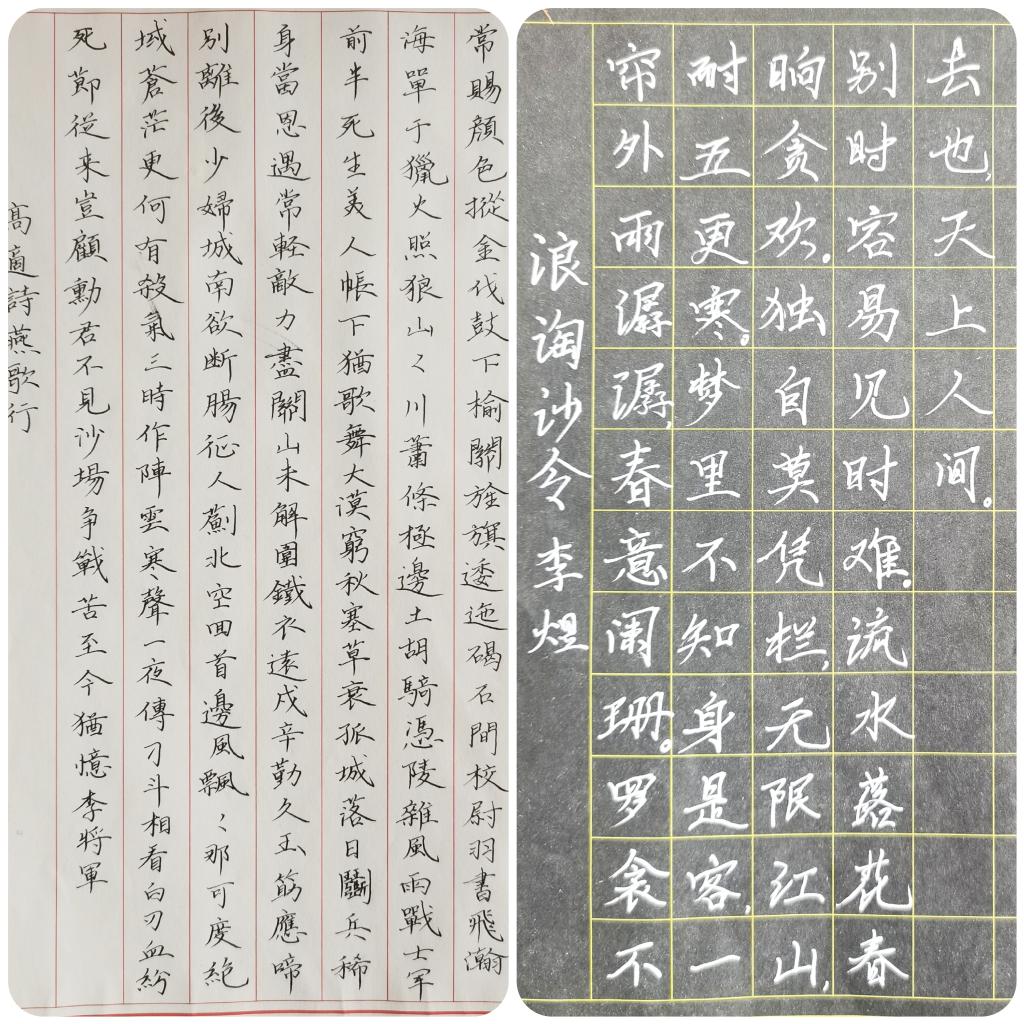 常賜顏色摐金伐鼓下榆關旌旗逶迤碣石間校尉羽書飛瀚
海單于獵火照狼山々川蕭條極邊土胡騎憑陵雜風雨戰士軍
前半死生美人帳下猶歌舞大漠窮秋塞草衰孤城落日鬭兵稀
身當恩遇常軽敵力盡關山未解圍鐵衣遠戍辛勤久玉筯應啼
別離後少婦城南欲断腸征人薊北空回首邊風飄々那可度絕
域蒼茫更何有殺氣三時作陣雲寒聲一夜傳刁斗相看白刃血紛
死節從来豈顧勳君不見沙場争戰苦至今猶憶李將軍
高適詩燕歌行
浪淘沙令 李煜
帘外雨潺潺,春意阑珊。罗衾不
耐五更寒。梦里不知身是客,一
晌贪欢。独自莫凭栏,无限江山,
别时容易见时难。流水落花春
去也,天上人间。